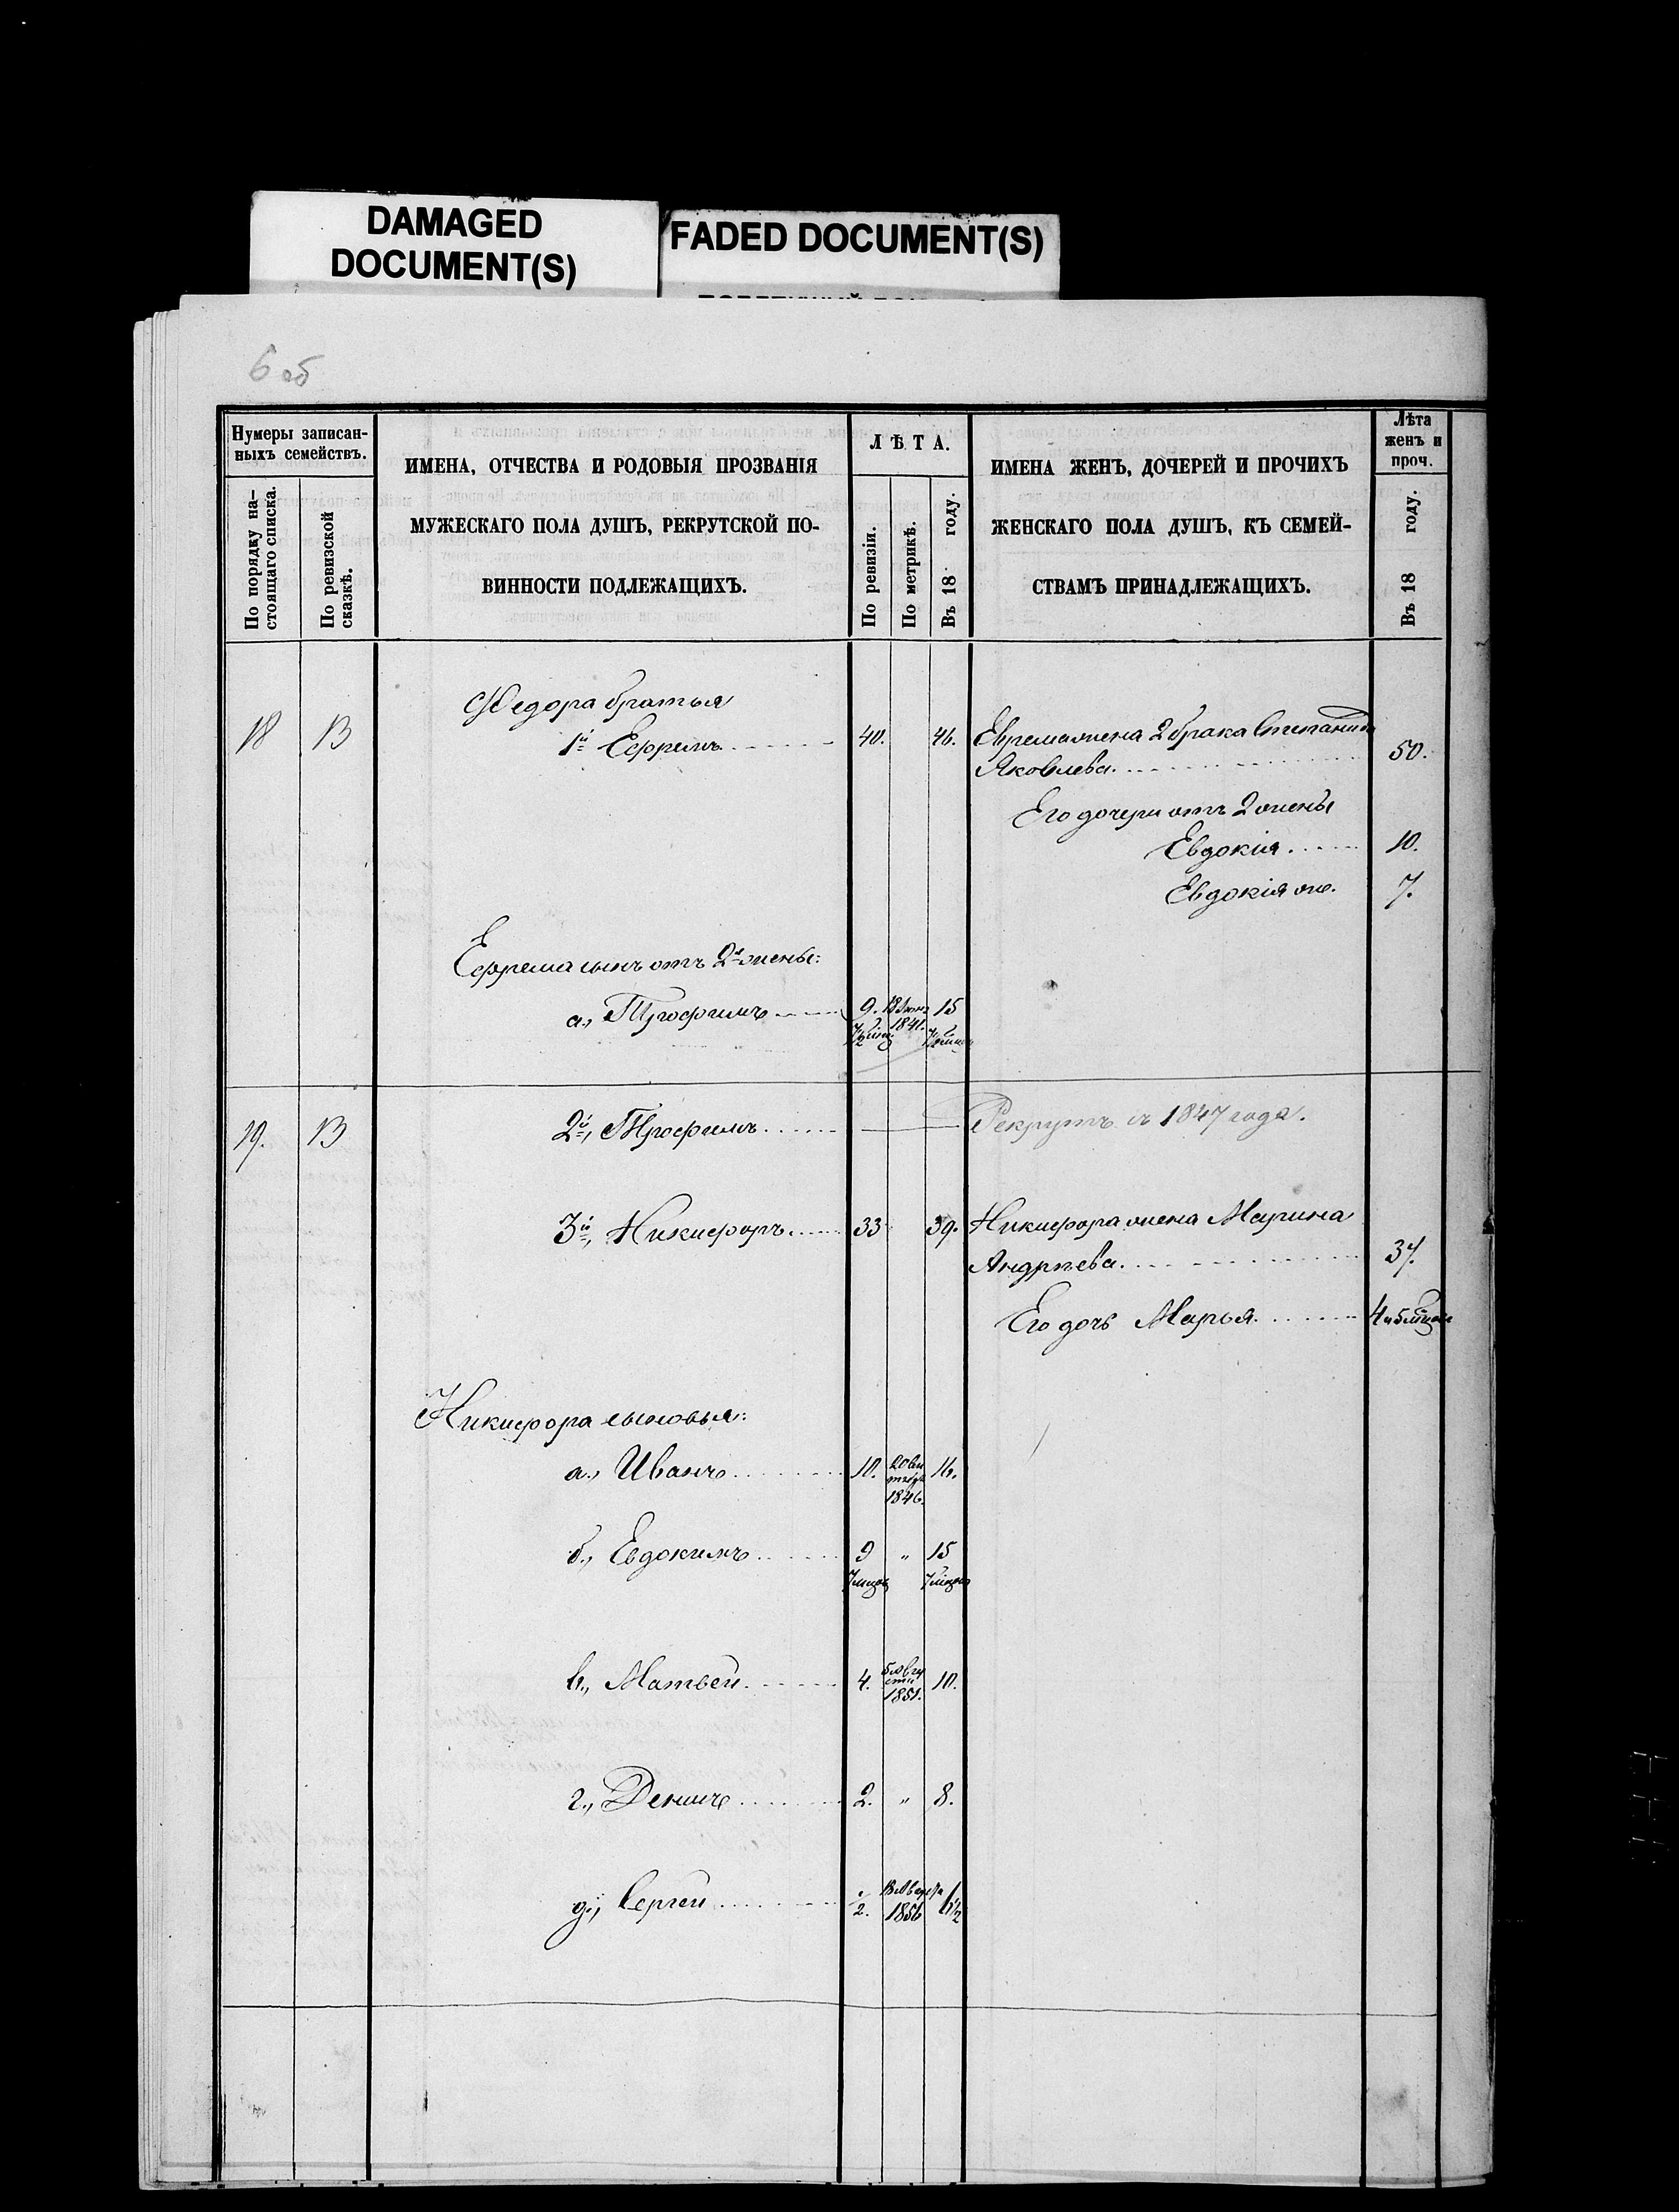 DAMAGED
DOCUMENT(S)
FADED DOCUMENT(S)
6 об
Нумеры записан-
ныхъ семействъ.
По порядку на-
стоящаго списка.
По ревизской
сказкѣ.
ИМЕНА, ОТЧЕСТВА И РОДОВЫЯ ПРОЗВАНІЯ
МУЖЕСКАГО ПОЛА ДУШЪ, РЕКРУТСКОЙ ПО-
ВИННОСТИ ПОДЛЕЖАЩИХЪ.
ЛѢТА.
По ревизіи.
По метрикѣ.
Въ 18 году.
ИМЕНА ЖЕНЪ, ДОЧЕРЕЙ И ПРОЧИХЪ
ЖЕНСКАГО ПОЛА ДУШЪ, КЪ СЕМЕЙ-
СТВАМЪ ПРИНАДЛЕЖАЩИХЪ.
Лѣта
женъ и
проч.
Въ 18 году.
Федора братья
18 13 1й Ефремъ 40. 46. Ефрема жена 2 брака Степанида
Яковлева. 50.
Его дочери отъ 2 жены
Евдокія 10.
Евдокія же. 7.
Ефрема сынъ отъ 2й жены:
а., Трофимъ 9. 15
1841.
19. 13 2й, Трофимъ Рекрутъ съ 1847 года.
3й, Никифоръ 33 39. Никифора жена Марина
Андрѣева. 37.
Его дочь Марья 4
Никифора сыновья:
а., Иванъ 10. 16.
1846.
б., Евдокимъ 9 " 15
в., Матвей 4. 10.
1851.
г., Денисъ 2. " 8.
д., Сергей 1/2. 6 1/2
1856